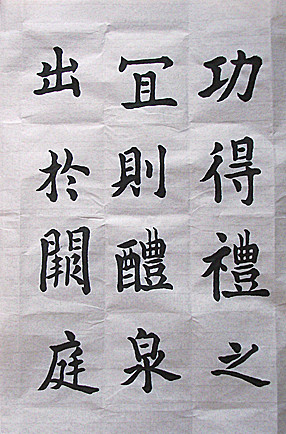 功得禮之
冝則醴泉
出於闕庭